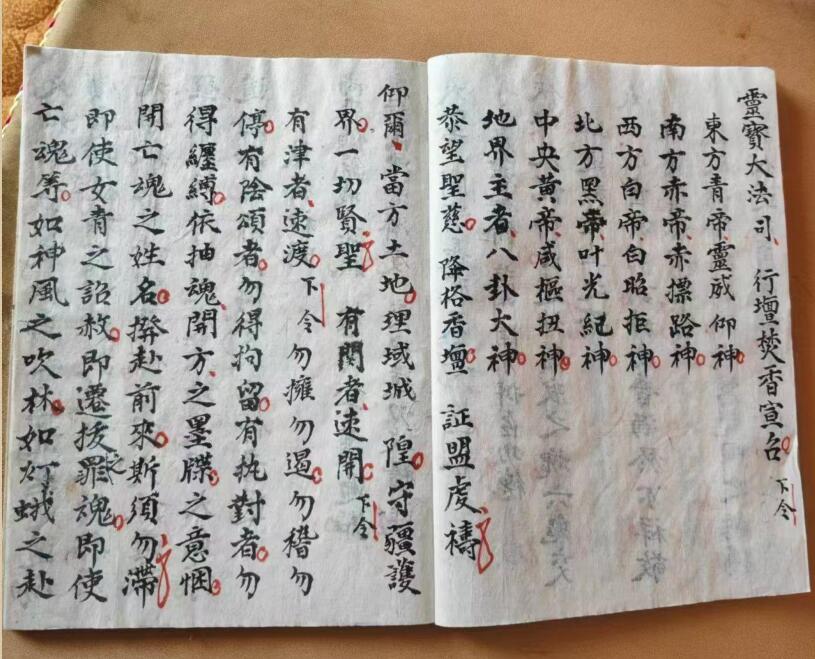 靈寶大法司 行壇焚香宣召 下令
東方青帝靈威仰神
南方赤帝赤摽路神
西方白帝白昭拒神
北方黑帝叶光紀神
中央黃帝咸樞扭神
地界主者八卦大神
恭望聖慈 降格香壇 証盟虔禱
仰爾當方土地理域城隍守疆護
界一切賢聖 有関者速開 下令
有津者速渡 下令 勿擁勿遏勿稽勿
停有陰頌者勿得拘留有执對者勿
得纏縛依抽魂開方之墨牒之意悃
開亡魂之姓名搩赴前來斯須勿滯
即使女青之詔赦即遷拔罪魂即使
亡魂等如神風之吹林如灯蛾之赴